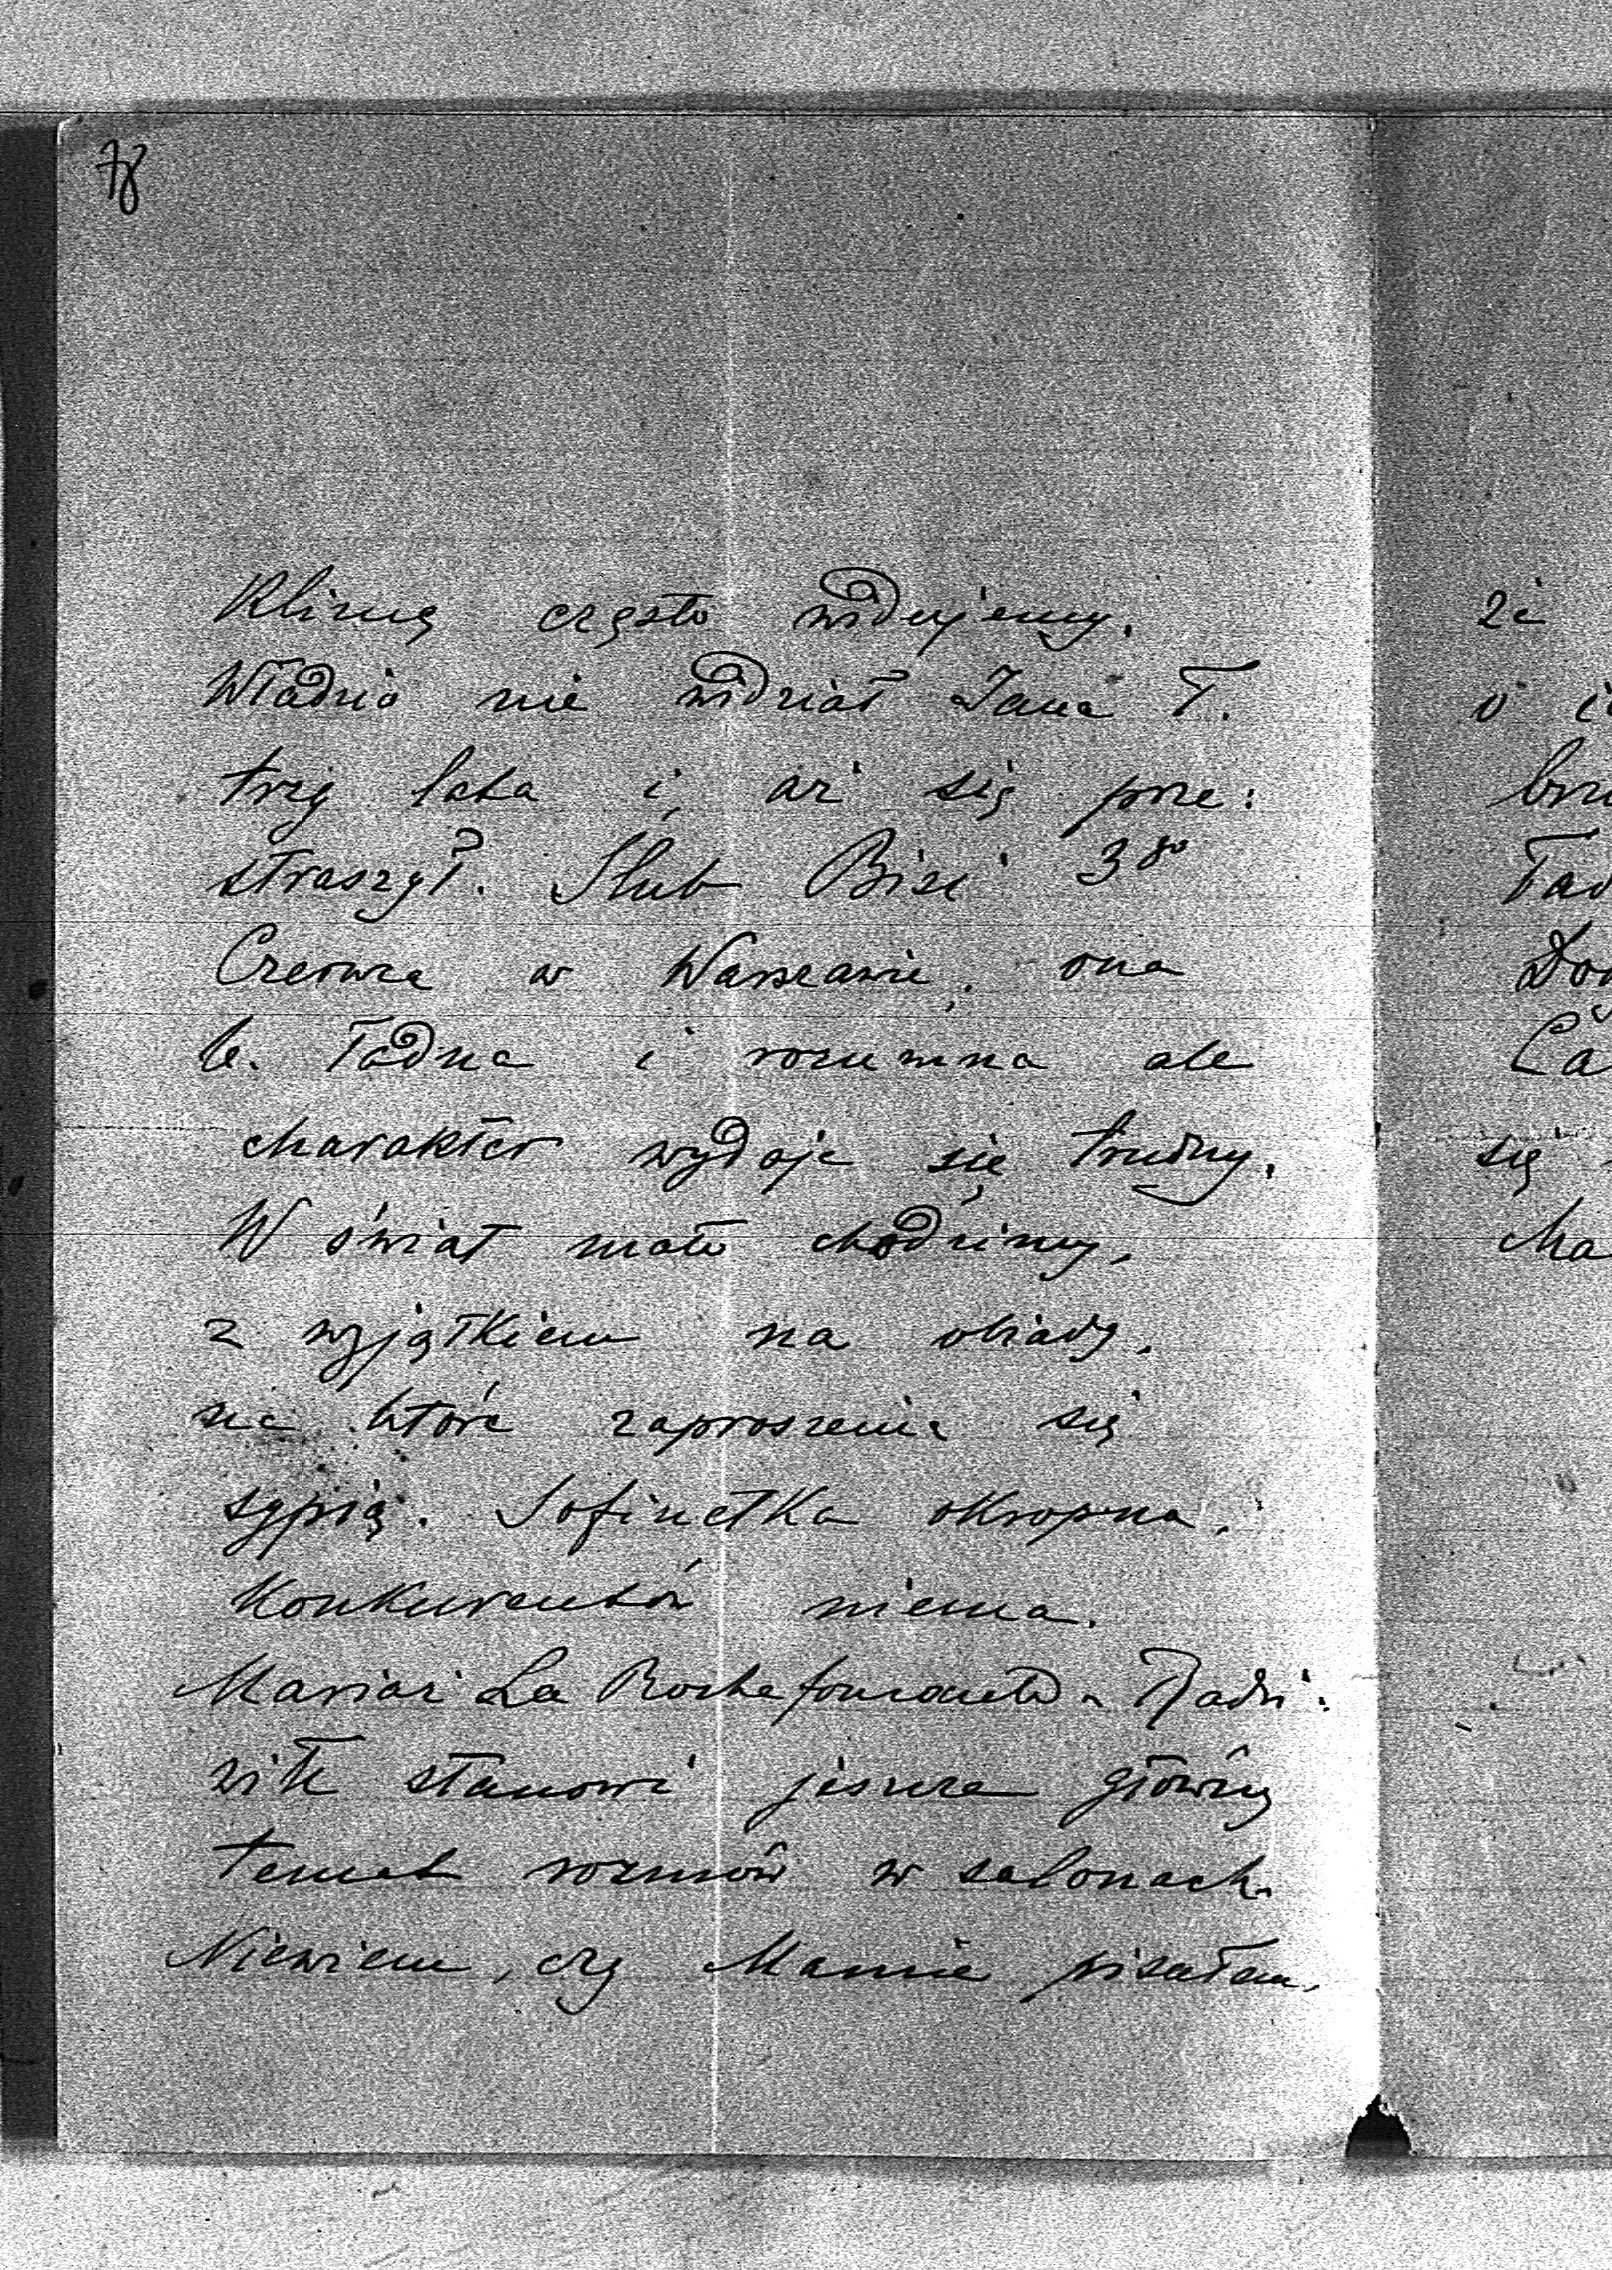 78
Klimę często widujemy.
Władzio nie widział Jana T.
trzy lata i, aż się prze:
straszył. Ślub Bizi 3go
Czerwca w Warszawie, ona
b. ładna i rozumna ale
charakter wydaje się trudny.
W świat mało chodzimy,
z wyjątkiem na obiady,
na które zaproszenia się
sypią. Sofinetka okropna.
Konkurentów niema.
Mariaż La Rochefoucauld - Radzi:
wiłł stanowi jeszcze główny
temat rozmów w salonach.
Niewiem, czy Mamie pisałem,